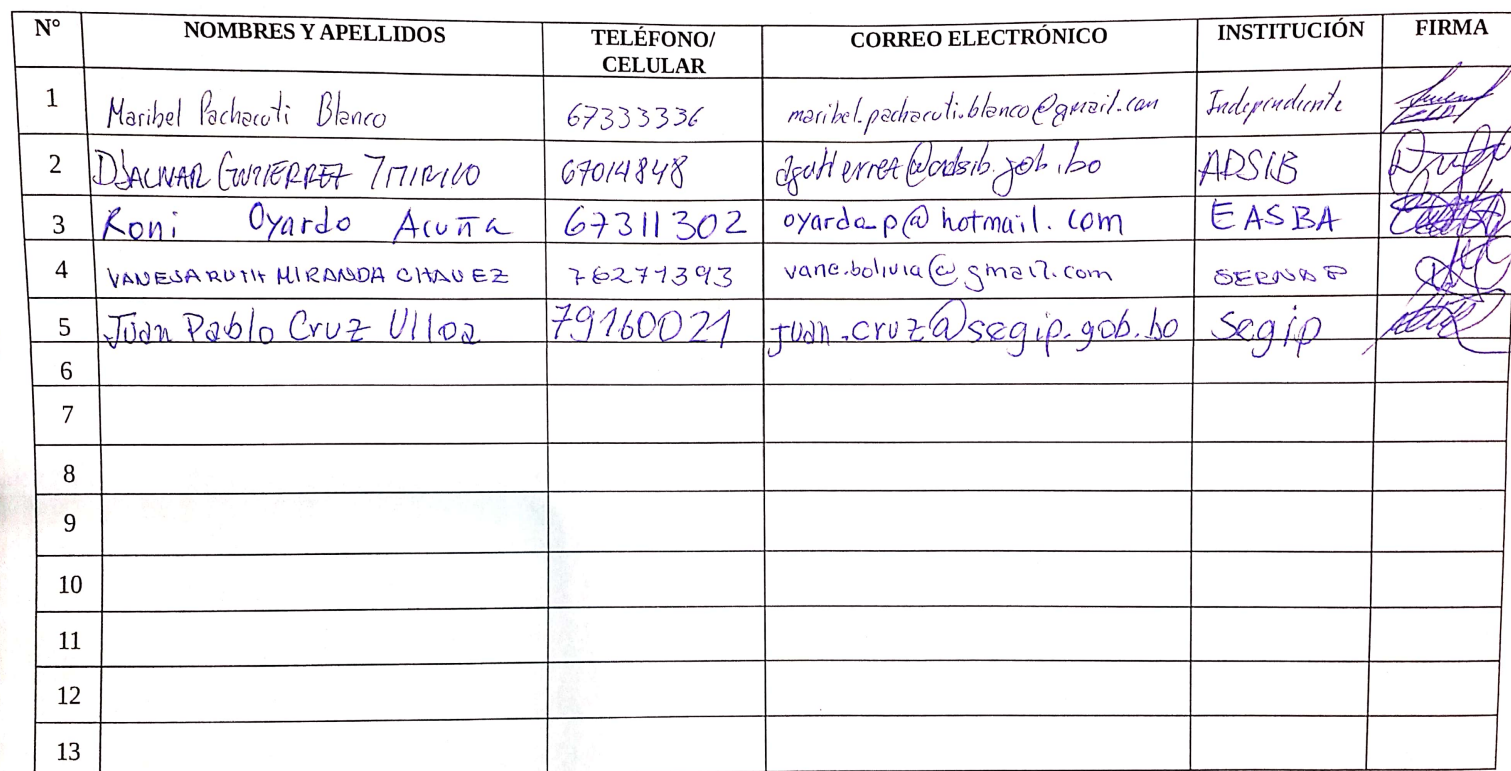 N° NOMBRES Y APELLIDOS TELÉFONO/ CELULAR CORREO ELECTRÓNICO INSTITUCIÓN FIRMA
1 Maribel Pachacuti Blanco 67333336 maribel.pachacuti.blanco@gmail.com Independiente
2 DJALMAR GUTIERREZ 67014848 dgutierrez@adsib.gob.bo ADSIB
3 Roni Oyardo Acuña 67311302 oyardo_p@hotmail.com EASBA
4 VANESA RUTH MIRANDA CHAVEZ 76271393 vane.bolivia@gmail.com SERNAP
5 Juan Pablo Cruz Ulloa 79160021 juan.cruz@segip.gob.bo Segip
6
7
8
9
10
11
12
13